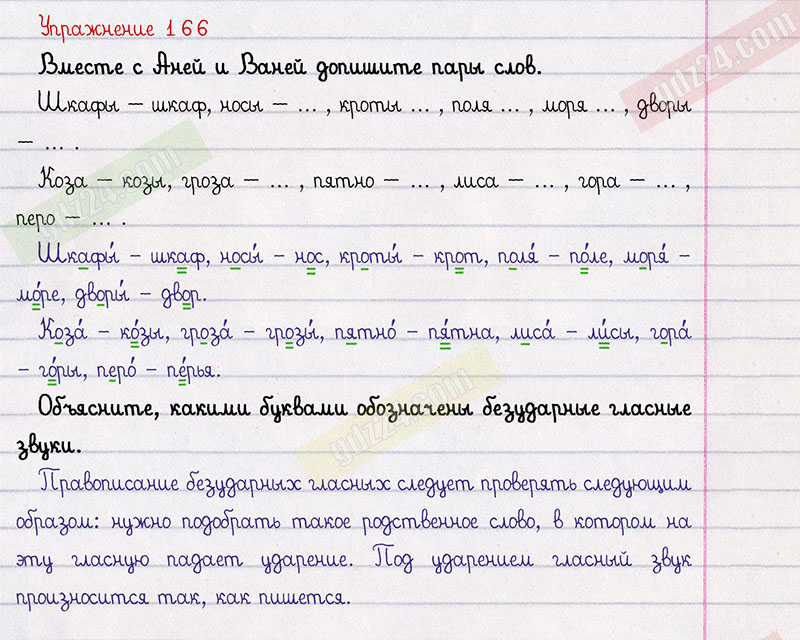 Упражнение 166
Вместе с Аней и Ваней допишите пары слов.
Шкафы – шкаф, носы – ... , кроты ... , поля ... , моря ... , дворы
– ... .
Коза – козы, гроза – ... , пятно – ... , лиса – ... , гора – ... ,
перо – ... .
Шкафы́ – шкаф, носы́ – нос, кроты́ – крот, поля́ – по́ле, моря́ –
мо́ре, дворы́ – двор.
Коза́ – ко́зы, гроза́ – грозы́, пятно́ – пя́тна, лиса́ – ли́сы, гора́
– го́ры, перо́ – пе́рья.
Объясните, какими буквами обозначены безударные гласные
звуки.
Правописание безударных гласных следует проверять следующим
образом: нужно подобрать такое родственное слово, в котором на
эту гласную падает ударение. Под ударением гласный звук
произносится так, как пишется.
gdz24.com
gdz24.com
gdz24.com